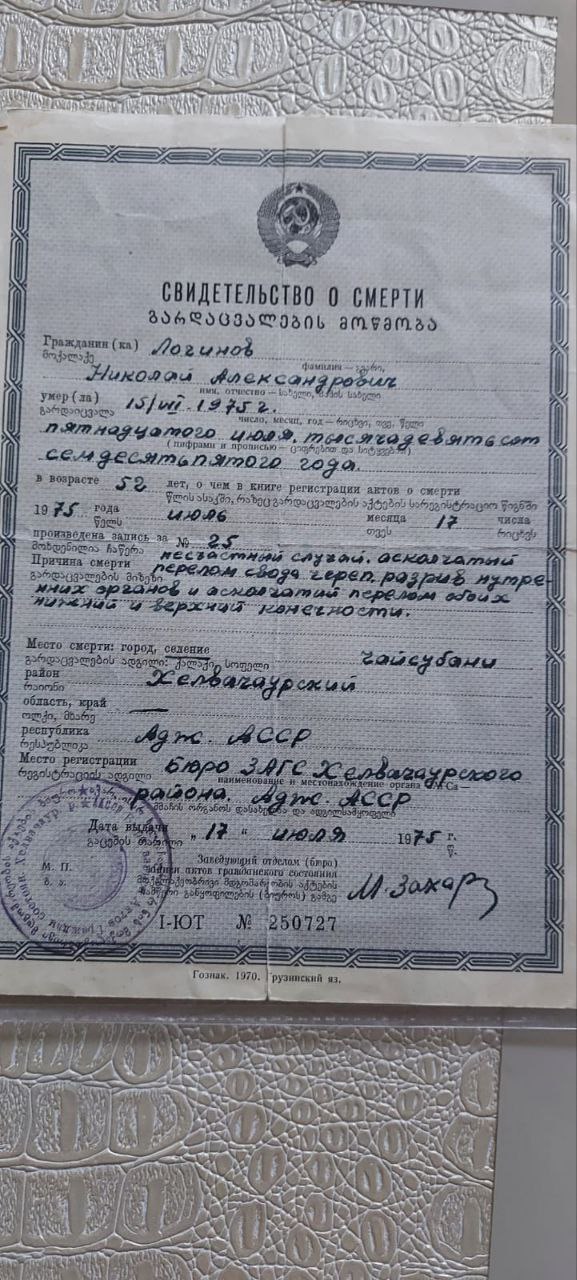 СВИДЕТЕЛЬСТВО О СМЕРТИ
გარდაცვალების მოწმობა
Гражданин (ка) Логинов
მოქალაქე
фамилия — გვარი,
Николай Александрович
имя, отчество — სახელი, მამის სახელი
умер (ла) 15/VII. 1975 г.
გარდაიცვალა
число, месяц, год — რიცხვი, თვე, წელი
пятнадцатого июля, тысячадевятьсот
(цифрами и прописью — ციფრებით და სიტყვებით)
семдесятьпятого года.
в возрасте 52 лет, о чем в книге регистрации актов о смерти
წლის ასაკში, რაზეც გარდაცვალების აქტების სარეგისტრაციო წიგნში
1975 года июль месяца 17 числа
წელს თვეს რიცხვს
произведена запись за № 25
მოხდენილია ჩაწერა
Причина смерти несчастный случай. асколчатый
გარდაცვალების მიზეზი перелом свода череп. разрив нутре-
нних органов и асколчатий перелом обоих
нижний и верхний конечности.
Место смерти: город, селение Чайсубани
გარდაცვალების ადგილი: ქალაქი, სოფელი
район Хелвачаурский
რაიონი
область, край —
ოლქი, მხარე
республика Адж. АССР
რესპუბლიკა
Место регистрации Бюро ЗАГС Хелвачаурского
რეგისტრაციის ადგილი
наименование и местонахождение органа ЗАГСа —
района. Адж. АССР
მმაჩის ორგანოს დასახელება და ადგილსამყოფელი
Дата выдачи „17“ июля 1975 г.
გაცემის თარიღი წ.
Заведующий отделом (бюро)
записи актов гражданского состояния
მოქალაქეობრივი მდგომარეობის აქტების
ჩამწერი განყოფილების (ბიუროს) გამგე
М. П.
ბ. ა.
I-ЮТ № 250727
Гознак. 1970. Грузинский яз.